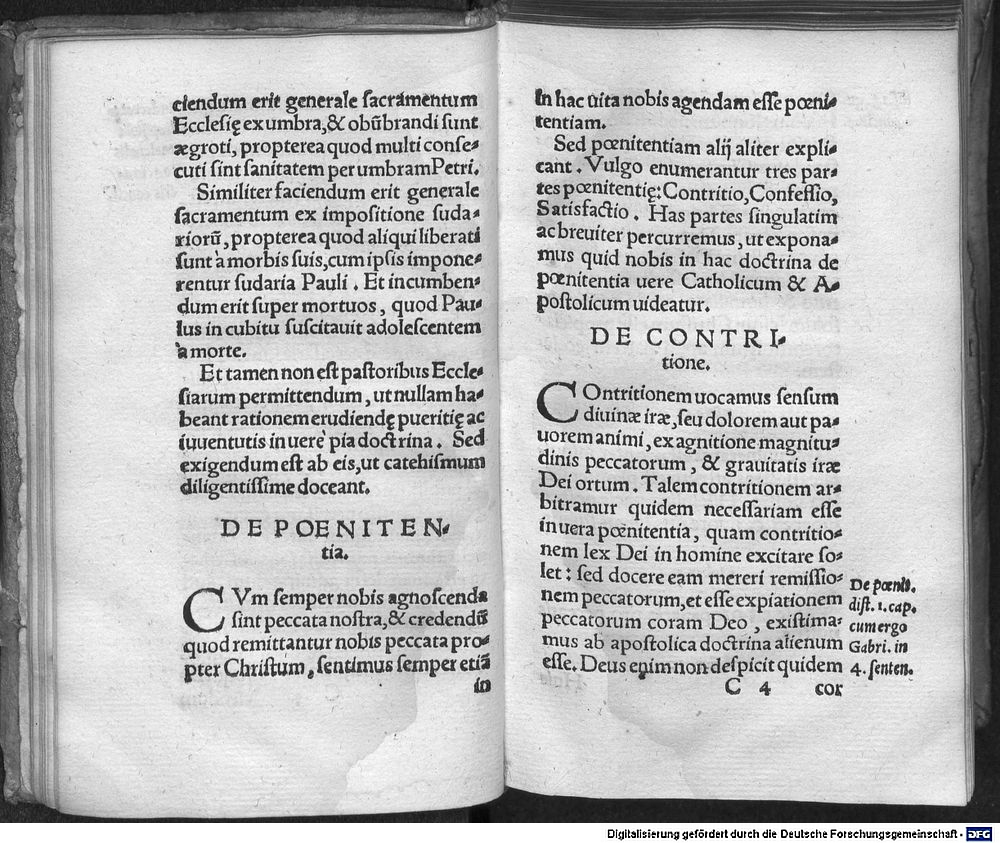 ciendum erit generale sacramentum
Ecclesię ex umbra, & obũbrandi sunt
ægroti, propterea quod multi conse-
cuti sint sanitatem per umbram Petri.
Similiter faciendum erit generale
sacramentum ex impositione suda-
riorũ, propterea quod aliqui liberati
sunt à morbis suis, cum ipsis impone-
rentur sudaria Pauli. Et incumben-
dum erit super mortuos, quod Pau-
lus in cubitu suscitauit adolescentem
à morte.
Et tamen non est pastoribus Eccle-
siarum permittendum, ut nullam ha-
beant rationem erudiendę pueritię ac
iuuentutis in uerè pia doctrina. Sed
exigendum est ab eis, ut catehismum
diligentissime doceant.
DE POENITEN-
tia.
CVm semper nobis agnoscenda
sint peccata nostra, & credendũ
quod remittantur nobis peccata pro-
pter Christum, sentimus semper etiã
in
in hac uita nobis agendam esse pœni-
tentiam.
Sed pœnitentiam alij aliter expli-
cant. Vulgo enumerantur tres par-
tes pœnitentię: Contritio, Confessio,
Satisfactio. Has partes singulatim
ac breuiter percurremus, ut expona-
mus quid nobis in hac doctrina de
pœnitentia uere Catholicum & A-
postolicum uideatur.
DE CONTRI-
tione.
COntritionem uocamus sensum
diuinæ iræ, seu dolorem aut pa-
uorem animi, ex agnitione magnitu-
dinis peccatorum, & grauitatis iræ
Dei ortum. Talem contritionem ar-
bitramur quidem necessariam esse
in uera pœnitentia, quam contritio-
nem lex Dei in homine excitare so-
let: sed docere eam mereri remissio-
nem peccatorum, et esse expiationem
peccatorum coram Deo, existima-
mus ab apostolica doctrina alienum
esse. Deus enim non despicit quidem
C 4 cor
De pœnit.
dist. 1. cap.
cum ergo
Gabri. in
4. senten.
Digitalisierung gefördert durch die Deutsche Forschungsgemeinschaft - DFG